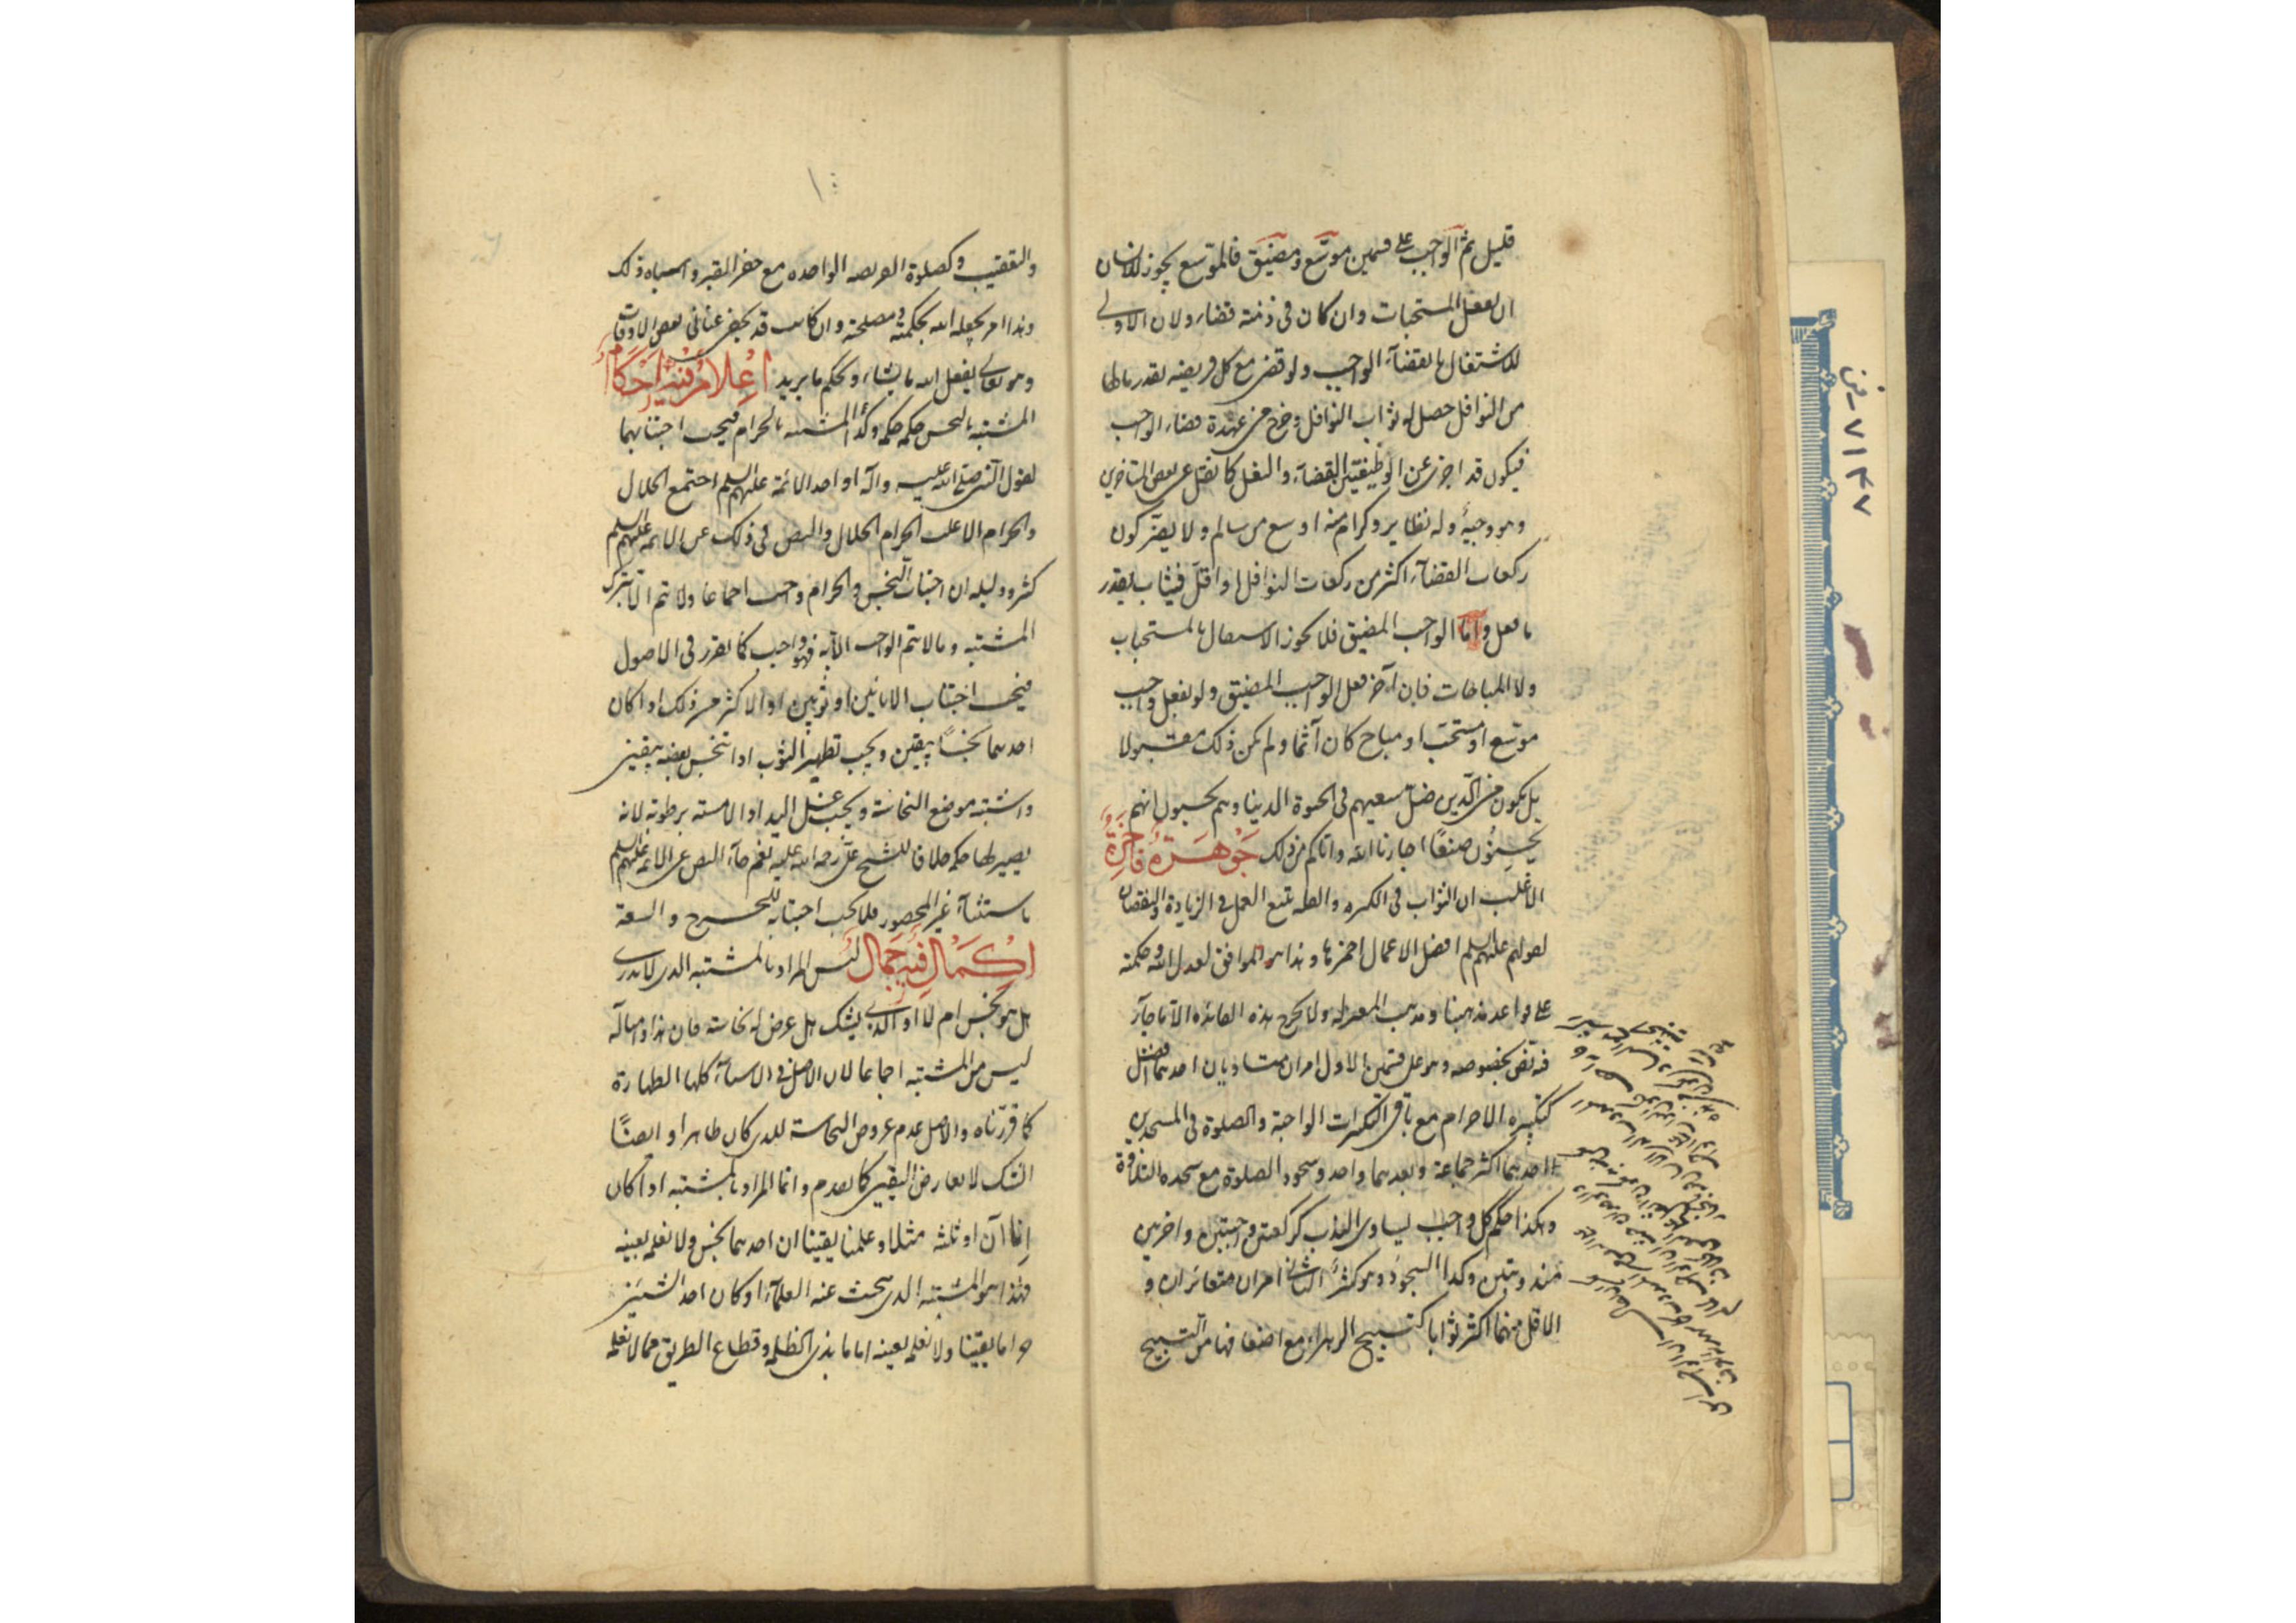 قليل ثم الواجب على قسمين موسّع ومضيّق فالموسع يجوز للانسان
ان يفعل المستحبات وان كان فى ذمته قضاء ولان الاولى
للاشتغال بالقضاء الواجب ولو قضى مع كل فريضة بقدر مالها
من النوافل حصل له ثواب النوافل وخرج من عهدة قضاء الواجب
فيكون قد اجزى عن الوظيفتين القضاء والنفل كما نقل عن بعض المتاخرين
وهو وجيه وله نظاير وكرام منه اوسع من سالم ولا يضر كون
ركعات القضاء اكثر من ركعات النوافل او اقل فيثاب بقدر
ما فعل واما الواجب المضيق فلا يجوز الاشتغال بالمستحباب
ولا المباحات فان اخر فعل الواجب المضيق ولو بفعل واجب
موسّع او مستحب او مباح كان آثما ولم يكن ذلك مقبولا
بل يكون من الّذين ضل سعيهم فى الحيوة الدنيا وهم يحسبون انهم
يحسنون صنعًا اجارنا الله واياكم من ذلك جَوْهَرَةٌ فَاخِرَةٌ
الاغلب ان الثواب فى الكثره والقله يتبع العمل فى الزيادة والنقصان
لقولهم عليهم السلم افضل الاعمال احمزها وهذا هو الموافق لعدل الله وحكمته
على قواعد مذهبنا ومذهب المعتزله ولا يخرج هذه القاعده الا ما جاء
فيه نص بخصوصه وهو على قسمين الاول امران متساويان احدهما افضل
كتكبيرة الاحرام مع باقى التكبيرات الواجبة والصلوة فى المسجدين
احدهما اكثر جماعة وبعدهما واحد وسجود الصلوة مع سجده التلاوة
وهكذا حكم كل واجب يساوى الندب كركعتين واجبتين واخريين
مندوبتين وكذا السجود وهو كثير الثانى امران متغائران و
الاقل منهما اكثر ثوابا كتسبيح الزهراء مع اضعافها من التسبيح
والتعقيب وكصلوة الفريضه الواحده مع حفر المقبر واشباه ذلك
وهذا امر يجعله الله بحكمته ومصلحة وان كانت قد يخفى عنا فى بعض الاوقات
وهو تعالى يفعل الله ما يشاء ويحكم ما يريد اِعْلامٌ فيهِ اَحْكامٌ
المشتبه بالنجس حكمه حكمه وكذا المشتبه بالحرام فيجب اجتنابهما
لقول النبى صلى الله عليه وآله او احد الائمة عليهم السلم ما اجتمع الحلال
والحرام الا غلب الحرام الحلال والنص فى ذلك عن الائمه عليهم السلم
كثير ودليله ان اجتناب النجس والحرام واجب اجماعا ولا يتم الا بترك
المشتبه وما لا يتم الواجب الا به فهو واجب كما تقرر فى الاصول
فيجب اجتناب الانائين او ثوبين او الاكثر من ذلك اذا كان
احدهما نجسًا بيقين ويجب تطهير الثوب اذا تنجس بعضه بيقين
واشتبه موضع النجاسة ويجب غسل اليد اذا لامسته برطوبة لانه
يصير لها حكمه خلافا للشيخ على رحمه الله عليه نعم جاء النص عن الائمه عليهم السلم
باستثناء غير المحصور فلا يجب اجتنابه للحرج والسعة
اِكْمَالٌ فيهِ جَمَالٌ ليس المراد بالمشتبه الذى لا يدرى
هل هو نجس ام لا او الذى يشك هل عرض له نجاسة فان هذا وامثاله
ليس من المشتبه اجماعا لان الاصل فى الاشياء كلها الطهارة
كما قررناه والاصل عدم عروض النجاسة للذى كان طاهرا وايضًا
الشك لا يعارض اليقين كما تقدم وانما المراد بالمشتبه اذا كان
اناآن او ثلثه مثلا وعلمنا يقينا ان احدهما نجس ولا نعلمه بعينه
فهذا هو المشتبه الذى يبحث عنه العلماء او كان احد الشيئين
حراما يقينا ولا نعلمه بعينه اما ما بايدى الظلمه وقطاع الطريق مما لا نعلمه
۷۱۴۷